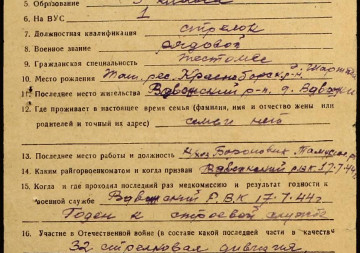 5. Образование 3 класса
6. На ВУС 1
7. Должностная квалификация стрелок
8. Военное звание рядовой
9. Гражданская специальность
10. Место рождения Тат. рес. Красноборск. р-н
11. Последнее место жительства р-н, д.
12. Где проживает в настоящее время семья (фамилия, имя и отчество жены или
родителей и точный их адрес) семьи нет
13. Последнее место работы и должность
14. Каким райгорвоенкоматом и когда призван РВК 17-7-44г
15. Когда и где проходил последний раз медкомиссию и результат годности к
военной службе РВК 17-7-44г
Годен к строевой службе
16. Участие в Отечественной войне (в составе какой последней части в качестве
32 стрелковая дивизия,